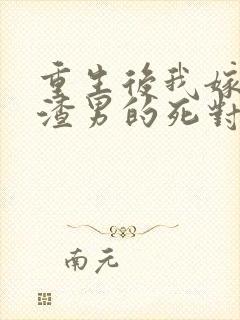 重生後我嫁
渣男的死對
南元